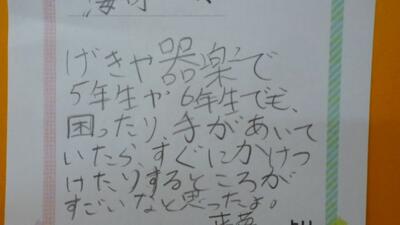 げきや器楽で
5年生や6年生でも、
困ったり、手があいて
いたら、すぐにかけつ
けたりするところが
すごいなと思ったよ。
より